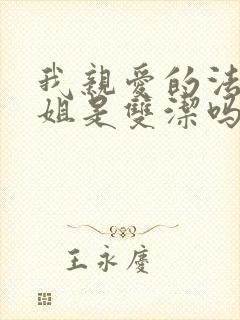 我親愛的法
姐是雙潔嗎
王永慶